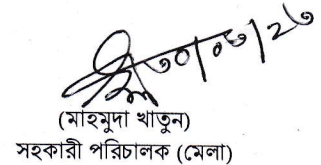 ৩০/০৩/২৩
(মাহমুদা খাতুন)
সহকারী পরিচালক (মেলা)